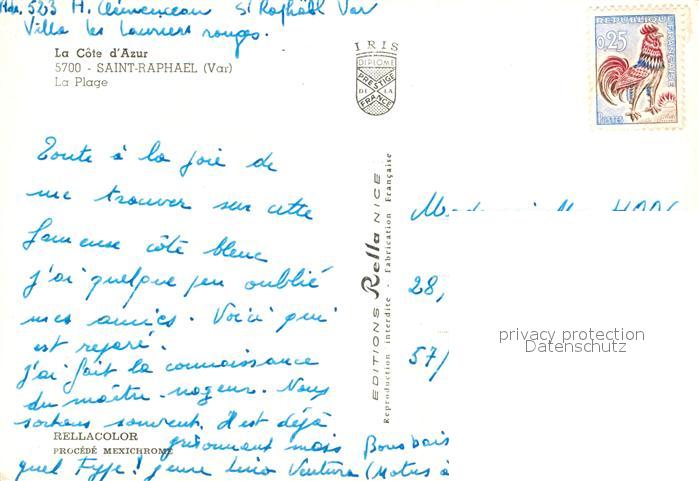 523 H. Clémenceau St Raphaël Var
Villa les Lauriers rouges.
La Côte d'Azur
5700 - SAINT-RAPHAEL (Var)
La Plage
IRIS
DIPLOME
PRESTIGE
DE LA
FRANCE
REPUBLIQUE
FRANÇAISE
0,25
POSTES
Toute à la joie de
me trouver sur cette
fameuse côte bleue
j'ai quelque peu oublié
mes amies. Voici qui
est reparé.
j'ai fait la connaissance
du maître-nageur. Nous
sortons souvent. Il est déjà
grisonnant mais Bons bais
quel Type! genre Lino Ventura (Motus
EDITIONS Rella NICE
Reproduction interdite - Fabrication Française
28,
57/
privacy protection
Datenschutz
RELLACOLOR
PROCÉDÉ MEXICHROME